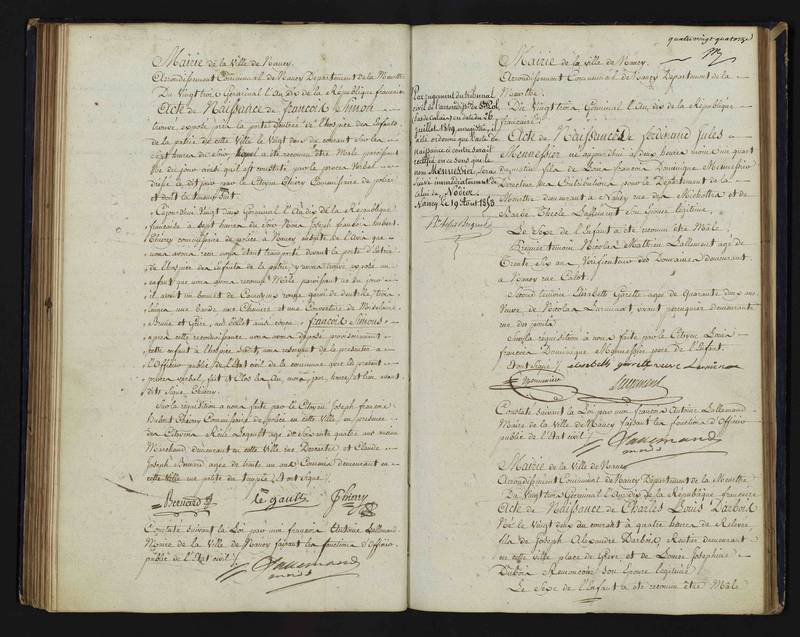 Mairie de la Ville de Nancy.
Arrondissement Communal de Nancy Departement de la Meurthe
Du Vingt trois Germinal l'An dix de la République francaise
Acte de Naissance de francois Simon
trouvé exposé près la porte d'entrée de l'hospice des Enfants
de la patrie de cette Ville le Vingt deux du courant sur les
Sept heures du soir a été reconnu être Male paroissant
né du jour ainsi qu'il est constaté par le procès Verbal
dressé le dit jour par le Citoyen Thiery Commissaire de police
et dont la teneur suit.
Cejourd'hui Vingt deux Germinal l'An dix de la République
francaise à sept heures du soir Nous Joseph francois hubert
Thiery commissaire de police à Nancy ensuite de l'avis que
nous avons reçu nous étant transporté devant la porte d'entrée
de l'hospice des enfants de la patrie y avons trouvé exposé un
enfant que nous avons reconnu Male paroissant né du jour
il avoit un bonnet de rouge garni de dentelle, trois
langes une bande une Chemise et une Couverture de
un billet ainsi conçu, francois Simons,
après cette reconnoissance nous avons déposé provisoirement
cette enfant à l'hospice Susdit, nous reservant de le presenter à
l'Officier public de l'Etat civil de la commune avec le présent
procès verbal, fait et Clos les An, mois, jour, heures et lieu avant
dits Signé Thiery.
Sur la réquisition à nous faite par le Citoyen Joseph francois
hubert Thiery Commissaire de police en cette Ville, en presence
des Citoyens Rémi Legault agé de soixante quatre ans
Marchand demeurant en cette ville rue et Claude
Joseph Bernard agé de trente un ans Commis demeurant en
cette Ville rue petite du temple, & ont signé.
Bernard le gault Thiery
Constaté suivant la Loi par moi francois Antoine Lallemand
Maire de la Ville de Nancy faisant les fonctions d'Officier
public de l'Etat civil.
Lallemand
maire
quatrevingt quatorze
Par jugement du tribunal
civil de l'arrondisst de St Pol
(pas de Calais) en date du
juillet 1849, enregistré, il
a été ordonné que l'acte de
naissance ci contre serait
rectifié en ce sens que le
nom Mennessier, sera
suivi immédiatement de
celui de Nodier.
Nancy le 19 Aout 1853.
Mairie de la Ville de Nancy.
Arrondissement Communal de Nancy Departement de la
Meurthe.
Du Vingt trois Germinal l'An dix de la République
francaise.
Acte de Naissance de ferdinand Jules
Mennessier né aujourd'hui à deux heures moins d'un quart
du matin fils de Louis francois Dominique Mennessier
Directeur des Contributions pour le Departement de la
Meurthe demeurant à Nancy rue des Michottes et de
Barbe Thecle Lallement son Epouse legitime,
Le Sexe de l'Enfant a été reconnu être Male,
Premier temoin Nicolas Mathieu Lallement agé de
Trente six ans Verificateur des Domaines demeurant
à Nancy rue Callot.
Second temoin Elisabeth Garelle agée de Quarante deux ans
Veuve de Nicolas vivant perruquier demeurante
rue des ponts
Sur la réquisition à nous faite par le Citoyen Louis
francois Dominique Mennessier père de l'Enfant.
& ont signé
Mennessier Lallement
Constaté suivant la Loi par moi francois Antoine Lallemand
Maire de la Ville de Nancy faisant les fonctions d'Officier
public de l'Etat civil.
Lallemand
maire
Mairie de la Ville de Nancy
Arrondissement Communal de Nancy Departement de la Meurthe
Du Vingt trois Germinal l'An dix de la République francaise
Acte de Naissance de Charles Louis Darbois
Né le Vingt deux du courant à quatre heures de Relevée
fils de Joseph Alexandre Darbois Rentier demeurant
en cette Ville place de Grève et de Louise Josephine
son Epouse legitime
Le Sexe de l'Enfant a été reconnu être Male